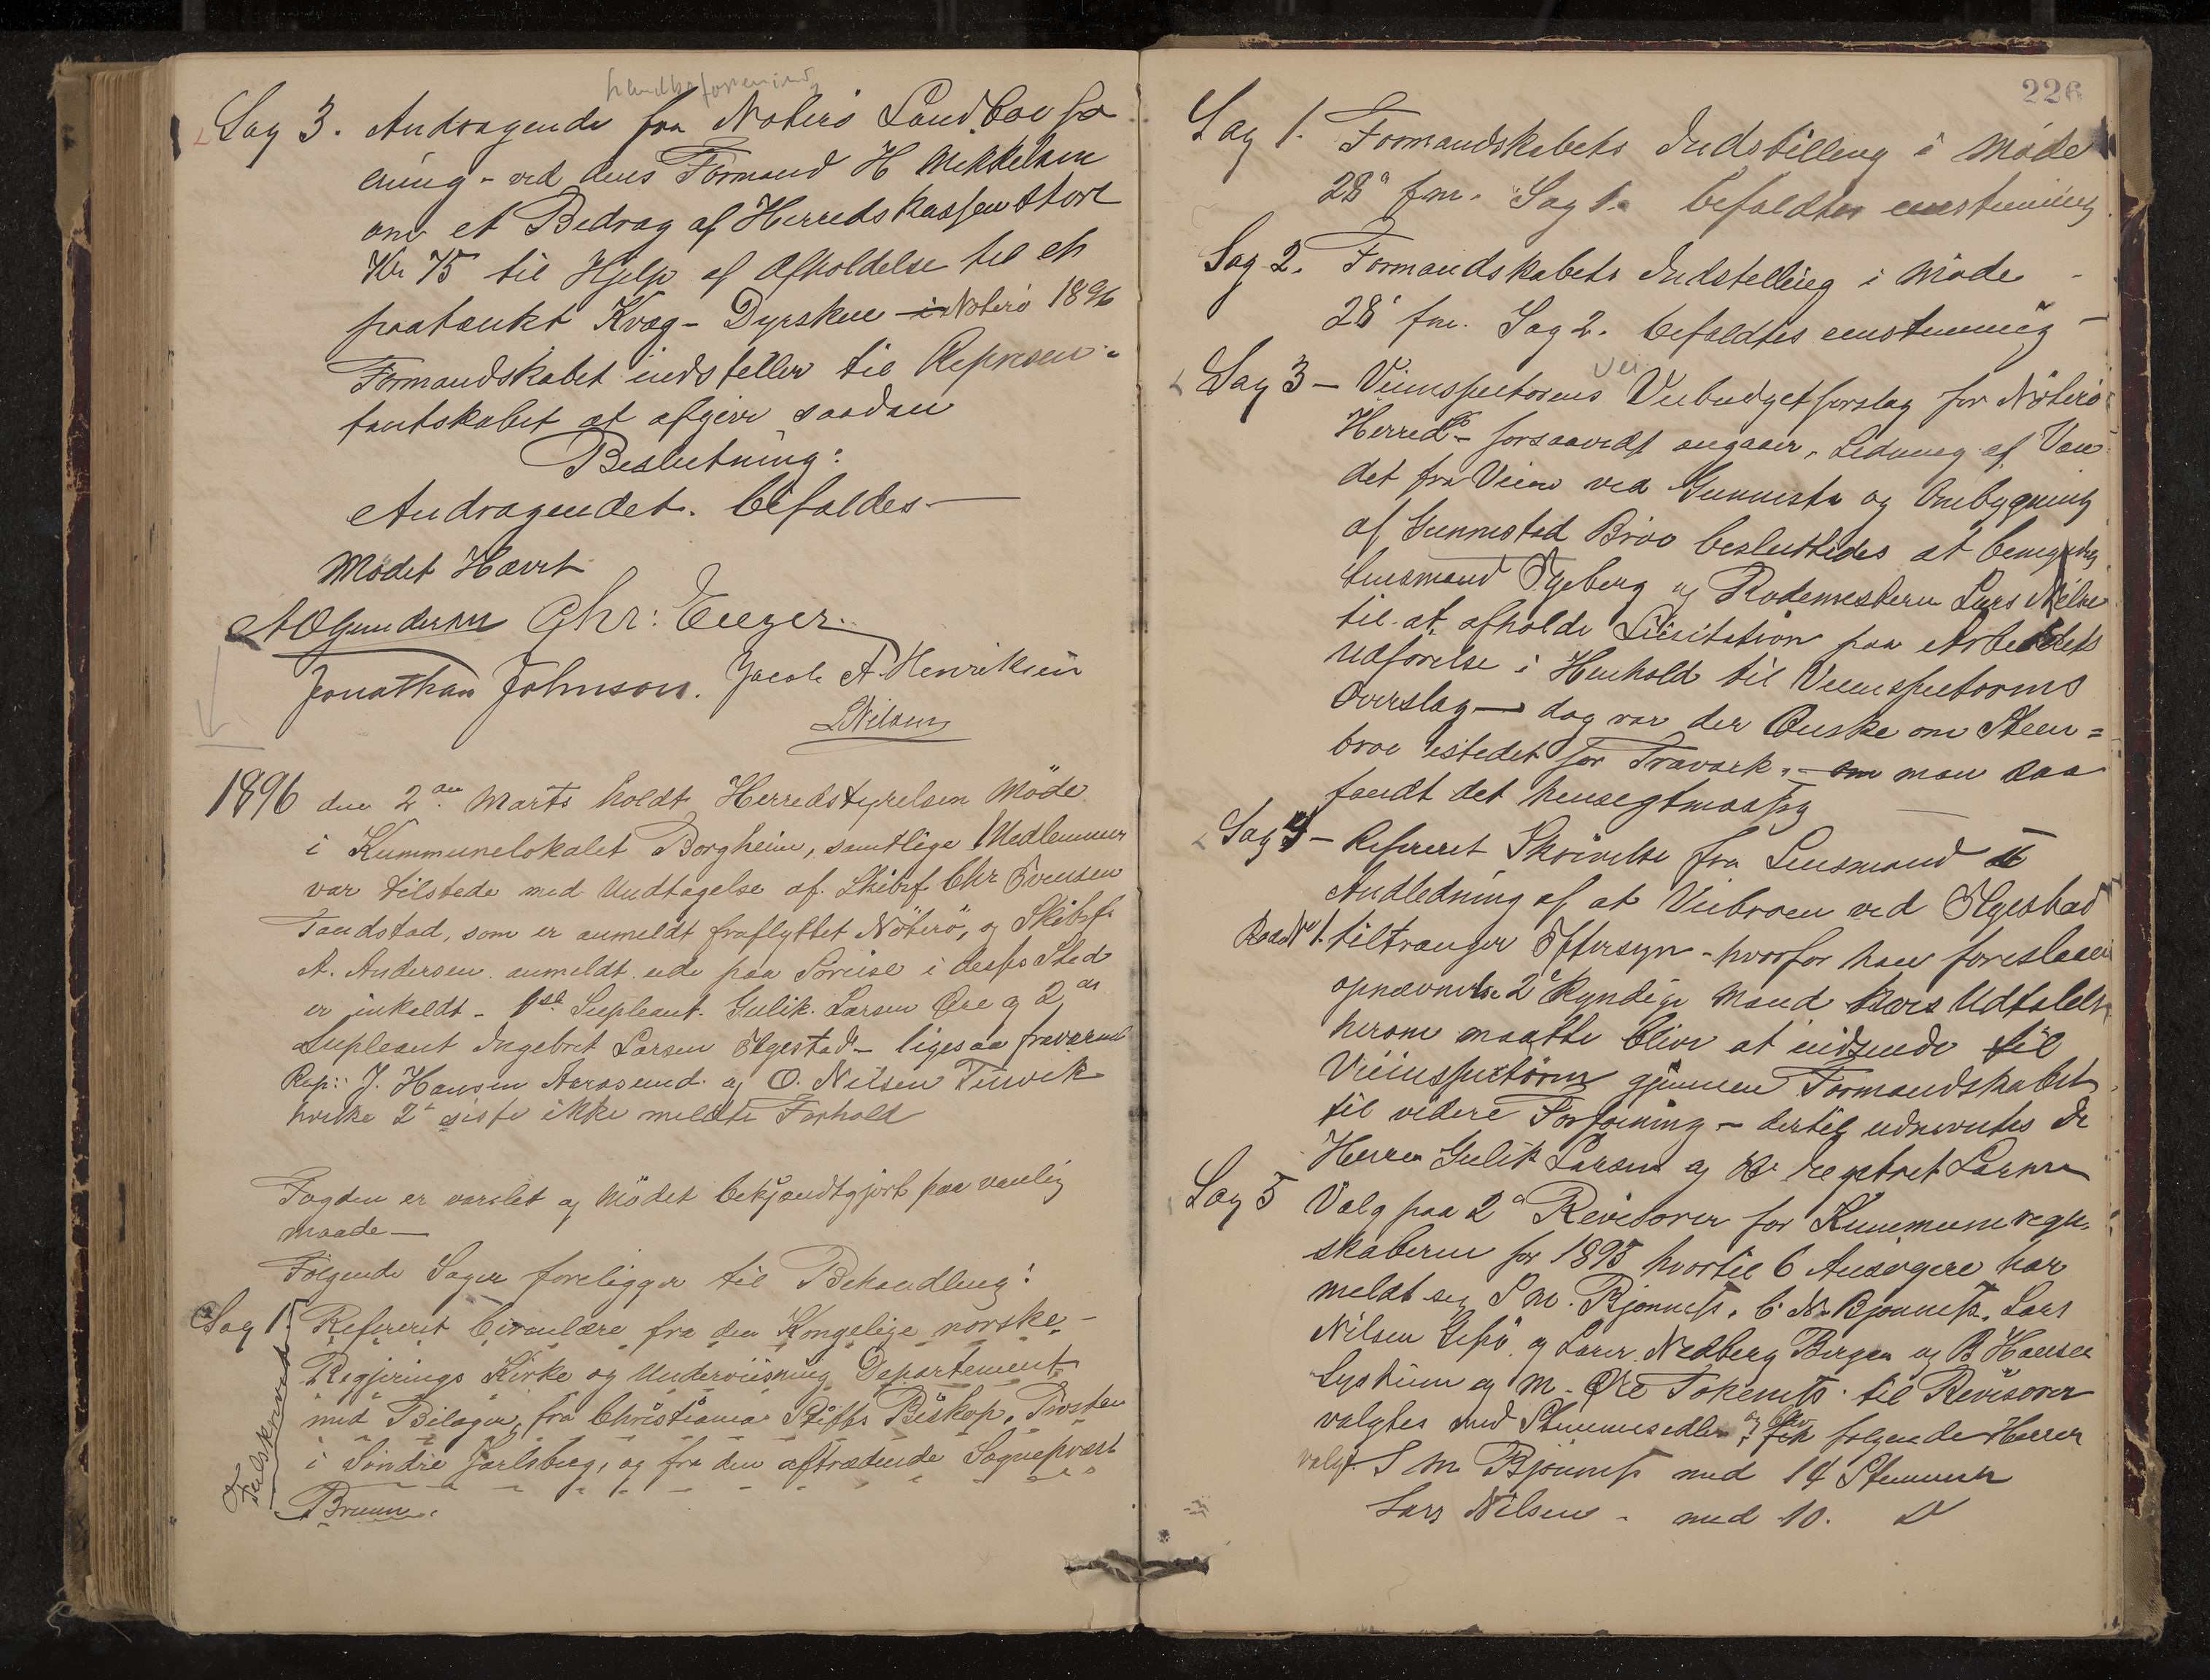 Sag 3. Andragende fra Nøterø Landbofor
ening - ved dens Formand H Mikkelsen
om et Bedrag af Herredskassen stort
Kr 75 til Hjelp af Afholdelse til et
paatænkt Kvæg- Dyrskue i Nøterø 1896
Formandskabet indstiller til Represen-
tantskabet at afgive saadan
Beslutning:
Andragendet. bifaldes
Mødet Hævet
A O Gundersen Chr: Eeger.
Jonathan Johnson. Jacob A Henriksen
L Nilsen
1896 den 2den Marts holdt Herredstyrelsen Møde
i Kummunelokalet Borgheim, samtlige Medlemmer
var tilstede med Undtagelse af. Skibsf Chr Svensen
Tandstad, som er anmeldt fraflyttet Nöterö, og Skibsf.
A. Andersen anmeldt ude paa Söreise i desses Sted
er inkaldt - 1ste Supleant. Gulik. Larsen Øre og 2den
Supleant Ingebret Larsen Elgestad - ligesaa fraværende
Rep:: J. Hansen Aarøsund. og O. Nilsen Tenvik
hvilke 2de siste ikke meldte Forhold
Fogden er varslet og Mödet bekjendtgjort paa vanlig
maade
Følgende Sager foreligger til Behandling:
Sag 1. Refereret Cirenlære fra den Kongelige norske
Regjerings Kirke og Underviisning Departement
med Bilager, fra Christiania Stifts Biskop, Prosten
i Søndre Jarlsberg, og fra den aftrædende Sognepræst
Bruun.
226
Sag 1. Formandskabets Indstilling i Møde
28de fm. Sag 1. bifaldtes eenstemmig
Sag 2. Formandskabets Indstilling i Møde
28de fm. Sag 2. bifaldtes eenstemmig
Vei
Sag 3 - Veiinspektørens Veibudgetforslag for Nöterö
Herred - forsaavidt angaaer, Ledning af Van
det fra Veien ved Gunnestad og Ombygning
af Gunnestad Broe besluttedes at bemyndige
Lensmand Ygeberg og Rodemesteren Lars Nilsen
til at afholde Lisitation paa Arbeidets
Udførelse i Henhold til Veiinspektørens
Overslag - dog var der Ønske om Steen=
broe istedet for Træværk, om man saa
fandt det hensegtmæssig
Sag 4 - Refereret Skrivelse fra Lensmand
Andledning af at Veibroen ved Elgestad
Rode No 1. tiltrænger Eftersyn - hvorfor han foreslaaer
opnævnelse 2de Kyndige Mænd hvis Udtalelse
herom maatte blive at indsende til
Veiinspektøren gjennem Formandskabet
til videre Forføining - dertil udnevntes de
Herrer Gulik Larsen og Ingebret Larsen
Sag 5 Valg paa 2de Revisorer for Kummuneregn-
skaberne for 1895 hvortil 6 Ansøgere har
meldt seg S M. Bjønness. C. N. Bjønness. Lars
Nilsen og Lærer Nedberg Bergan og B Hansen
og M. Øre Tokenes til Revisorer
valgtes med Stemmesedler og blev følgende Herrer
valgt. S M Bjønness med 14 Stemmer
Lars Nilsen - med 10. D